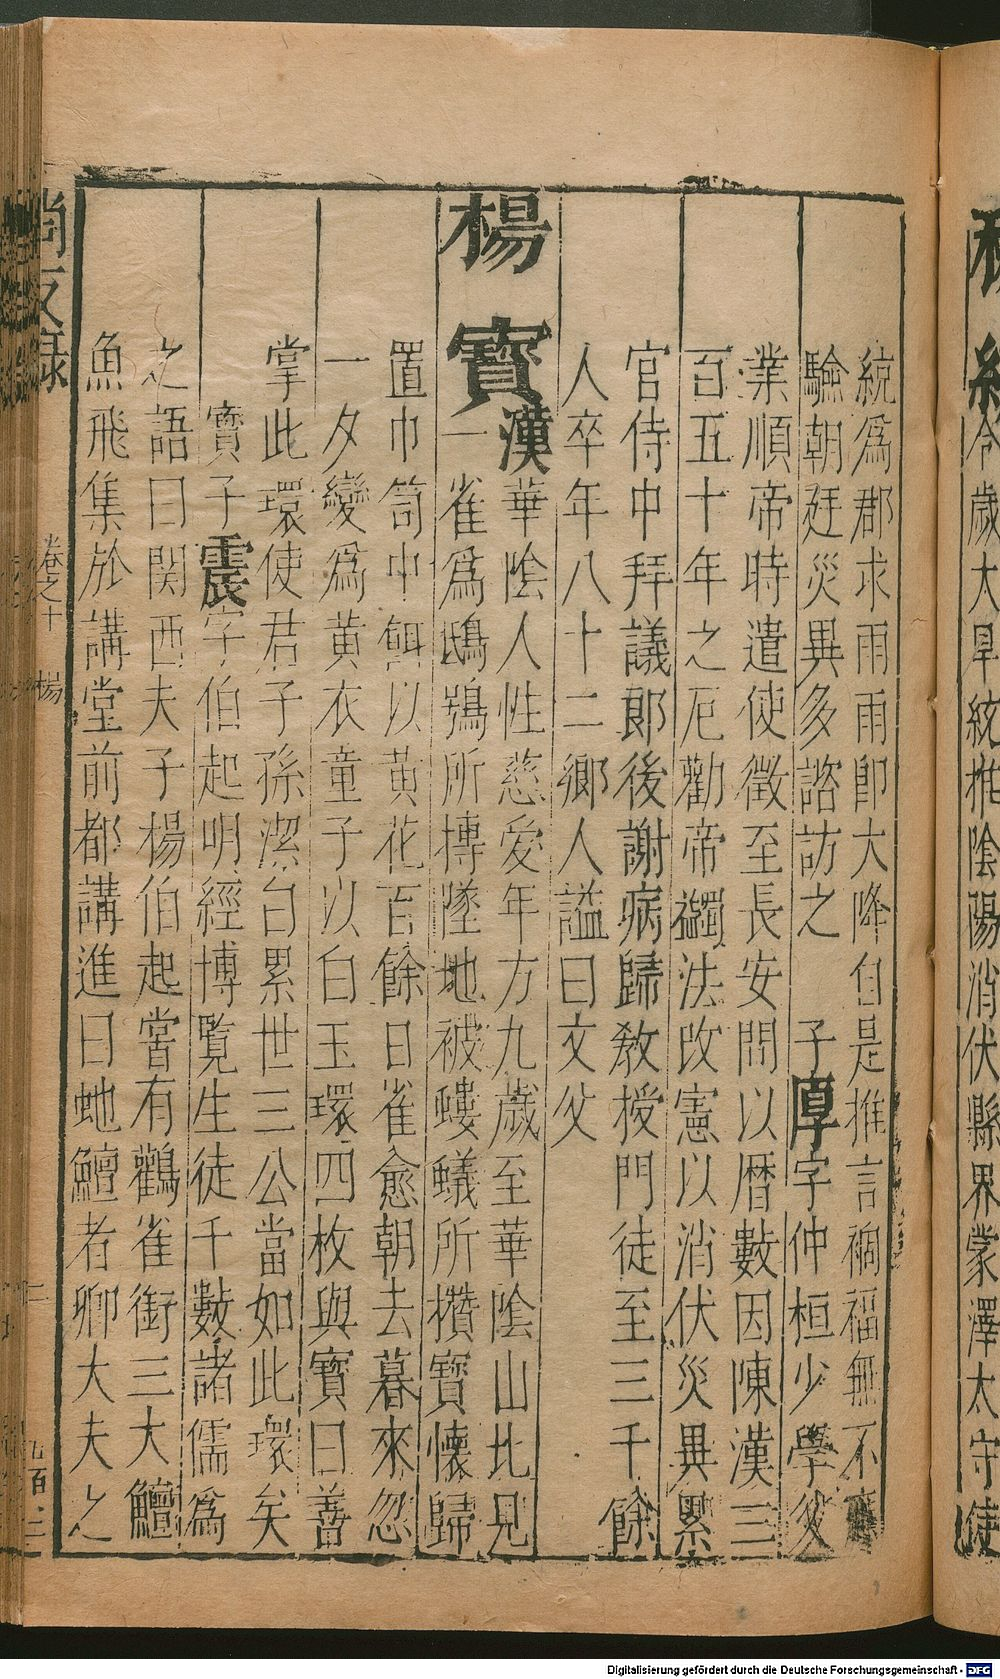 統爲郡求雨雨卽大降自是推言禍福無不應
驗朝廷災異多諮訪之 子厚字仲桓少學父
業順帝時遣使徵至長安問以曆數因陳漢三
百五十年之厄勸帝蠲法改憲以消伏災異累
官侍中拜議郎後謝病歸敎授門徒至三千餘
人卒年八十二鄉人謚曰文父
楊寳 漢華陰人性慈愛年方九歲至華陰山北見
一雀爲鴟鴞所搏墜地被螻蟻所攢寳懷歸
置巾笥中餌以黃花百餘日雀愈朝去暮來忽
一夕變爲黃衣童子以白玉環四枚與寳曰善
掌此環使君子孫潔白累世三公當如此環矣
寳子震字伯起明經博覽生徒千數諸儒爲
之語曰関西夫子楊伯起嘗有鸛雀銜三大鱣
魚飛集於講堂前都講進曰虵鱣者卿大夫之
尚友録 卷之十 楊
歲大旱統推陰陽消伏縣界蒙澤太守使
Digitalisierung gefördert durch die Deutsche Forschungsgemeinschaft - DFG